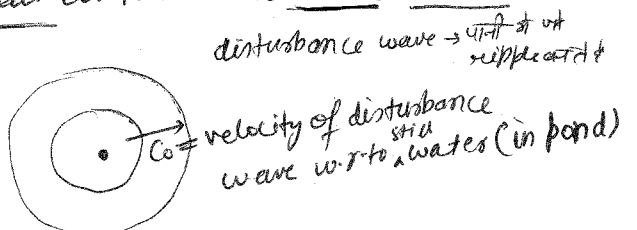 disturbance wave → पानी में जो
ripple आते हैं
C₀ = velocity of disturbance
wave w.r.to still water (in pond)